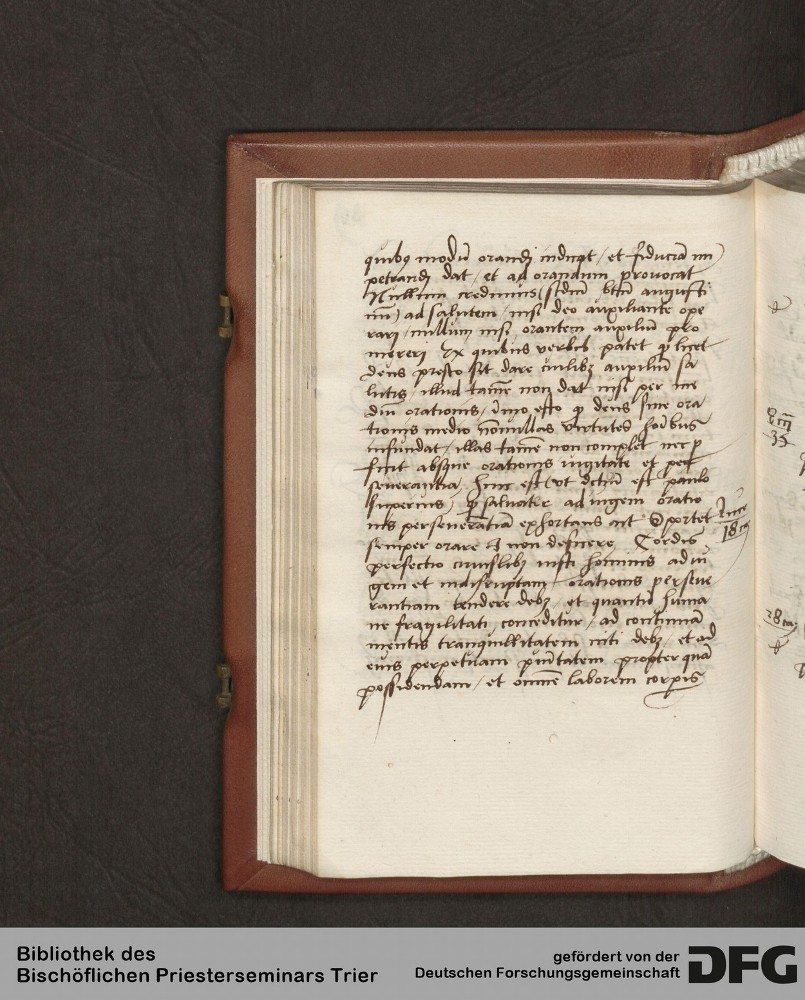 quibꝯ modū orandi indicat / et fiduciā im
petrandi dat / et ad orandum provocat
Nullum credimus (scdm btm augusti
nū) ad salutem / nisi deo auxiliante ope
rari / nullum nisi orantem auxiliū pro
mereri Ex quibus verbis patet ꝙ licet
deus presto sit dare cuilibꝫ auxiliū sa
lutis / illud tamē non dat nisi per me
diū orationis / īmo esto ꝙ deus sine ora
tionis medio nōnullas virtutes hoībus
infundat / illas tamē non complet nec p
ficit absque orationis iugitate et per
severantia / hinc est (vt dictū est paulo
superius) ꝙ salvator ad iugem oratio
nis perseveratiā exhortans ait Oportet
semper orare & non deficere Cordis
perfectio cuiuslibꝫ iusti hominis ad iu
gem et indiseruptam orationis perseve
rantiam tendere debꝫ / et quantū huma
ne fragilitati conceditur / ad continuā
mentis tranquillitatem niti debꝫ / et ad
eius perpetuam puritatem propter quā
possidendam / et omnē laborem corpis
Luce
18 ca
28 ca
Bibliothek des
Bischöflichen Priesterseminars Trier
gefördert von der
Deutschen Forschungsgemeinschaft
DFG